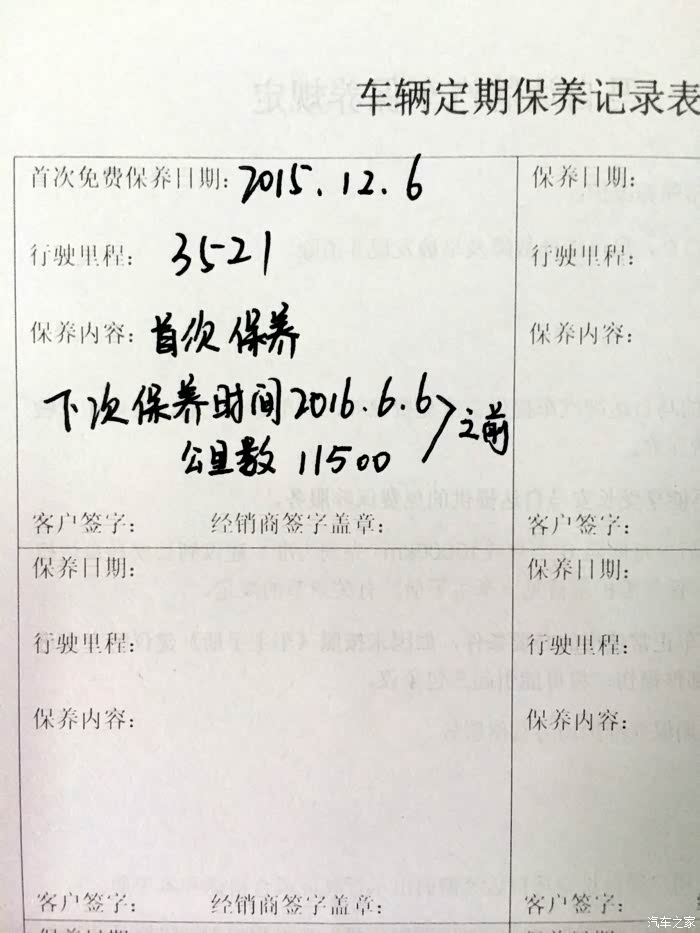 车辆定期保养记录表
首次免费保养日期：2015.12.6
行驶里程：3521
保养内容：首次保养
下次保养时间2016.6.6
公里数 11500
之前
客户签字： 经销商签字盖章：
保养日期：
行驶里程：
保养内容：
客户签字：
保养日期：
行驶里程：
保养内容：
客户签字： 经销商签字盖章：
保养日期：
行驶里程：
保养内容：
客户签字：
保养日期：
汽车之家